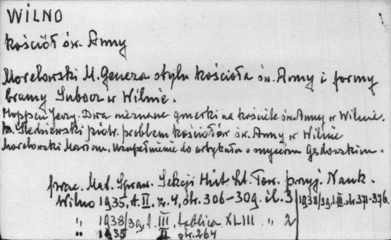 WILNO
kościół św. Anny
Morelowski M. Geneza stylu kościoła św. Anny i formy
bramy Subocz w Wilnie.
Hoppen Jerzy. Dwa nieznane gmerki na kościele św. Anny w Wilnie.
ks. Śledziewski Piotr. Problem kościołów św. Anny w Wilnie
Morelowski Marian. Uzupełnienie do artykułu o mycerzu Gądoszkim.
prac. Mat. Spraw. Sekcji Hist. Szt. Tow. Przyj. Nauk.
Wilno 1935, t. II. z. 4, str. 306-309. il. 3
1938/39 t. III tablica XLIII " 2
" 1935 II str. 264